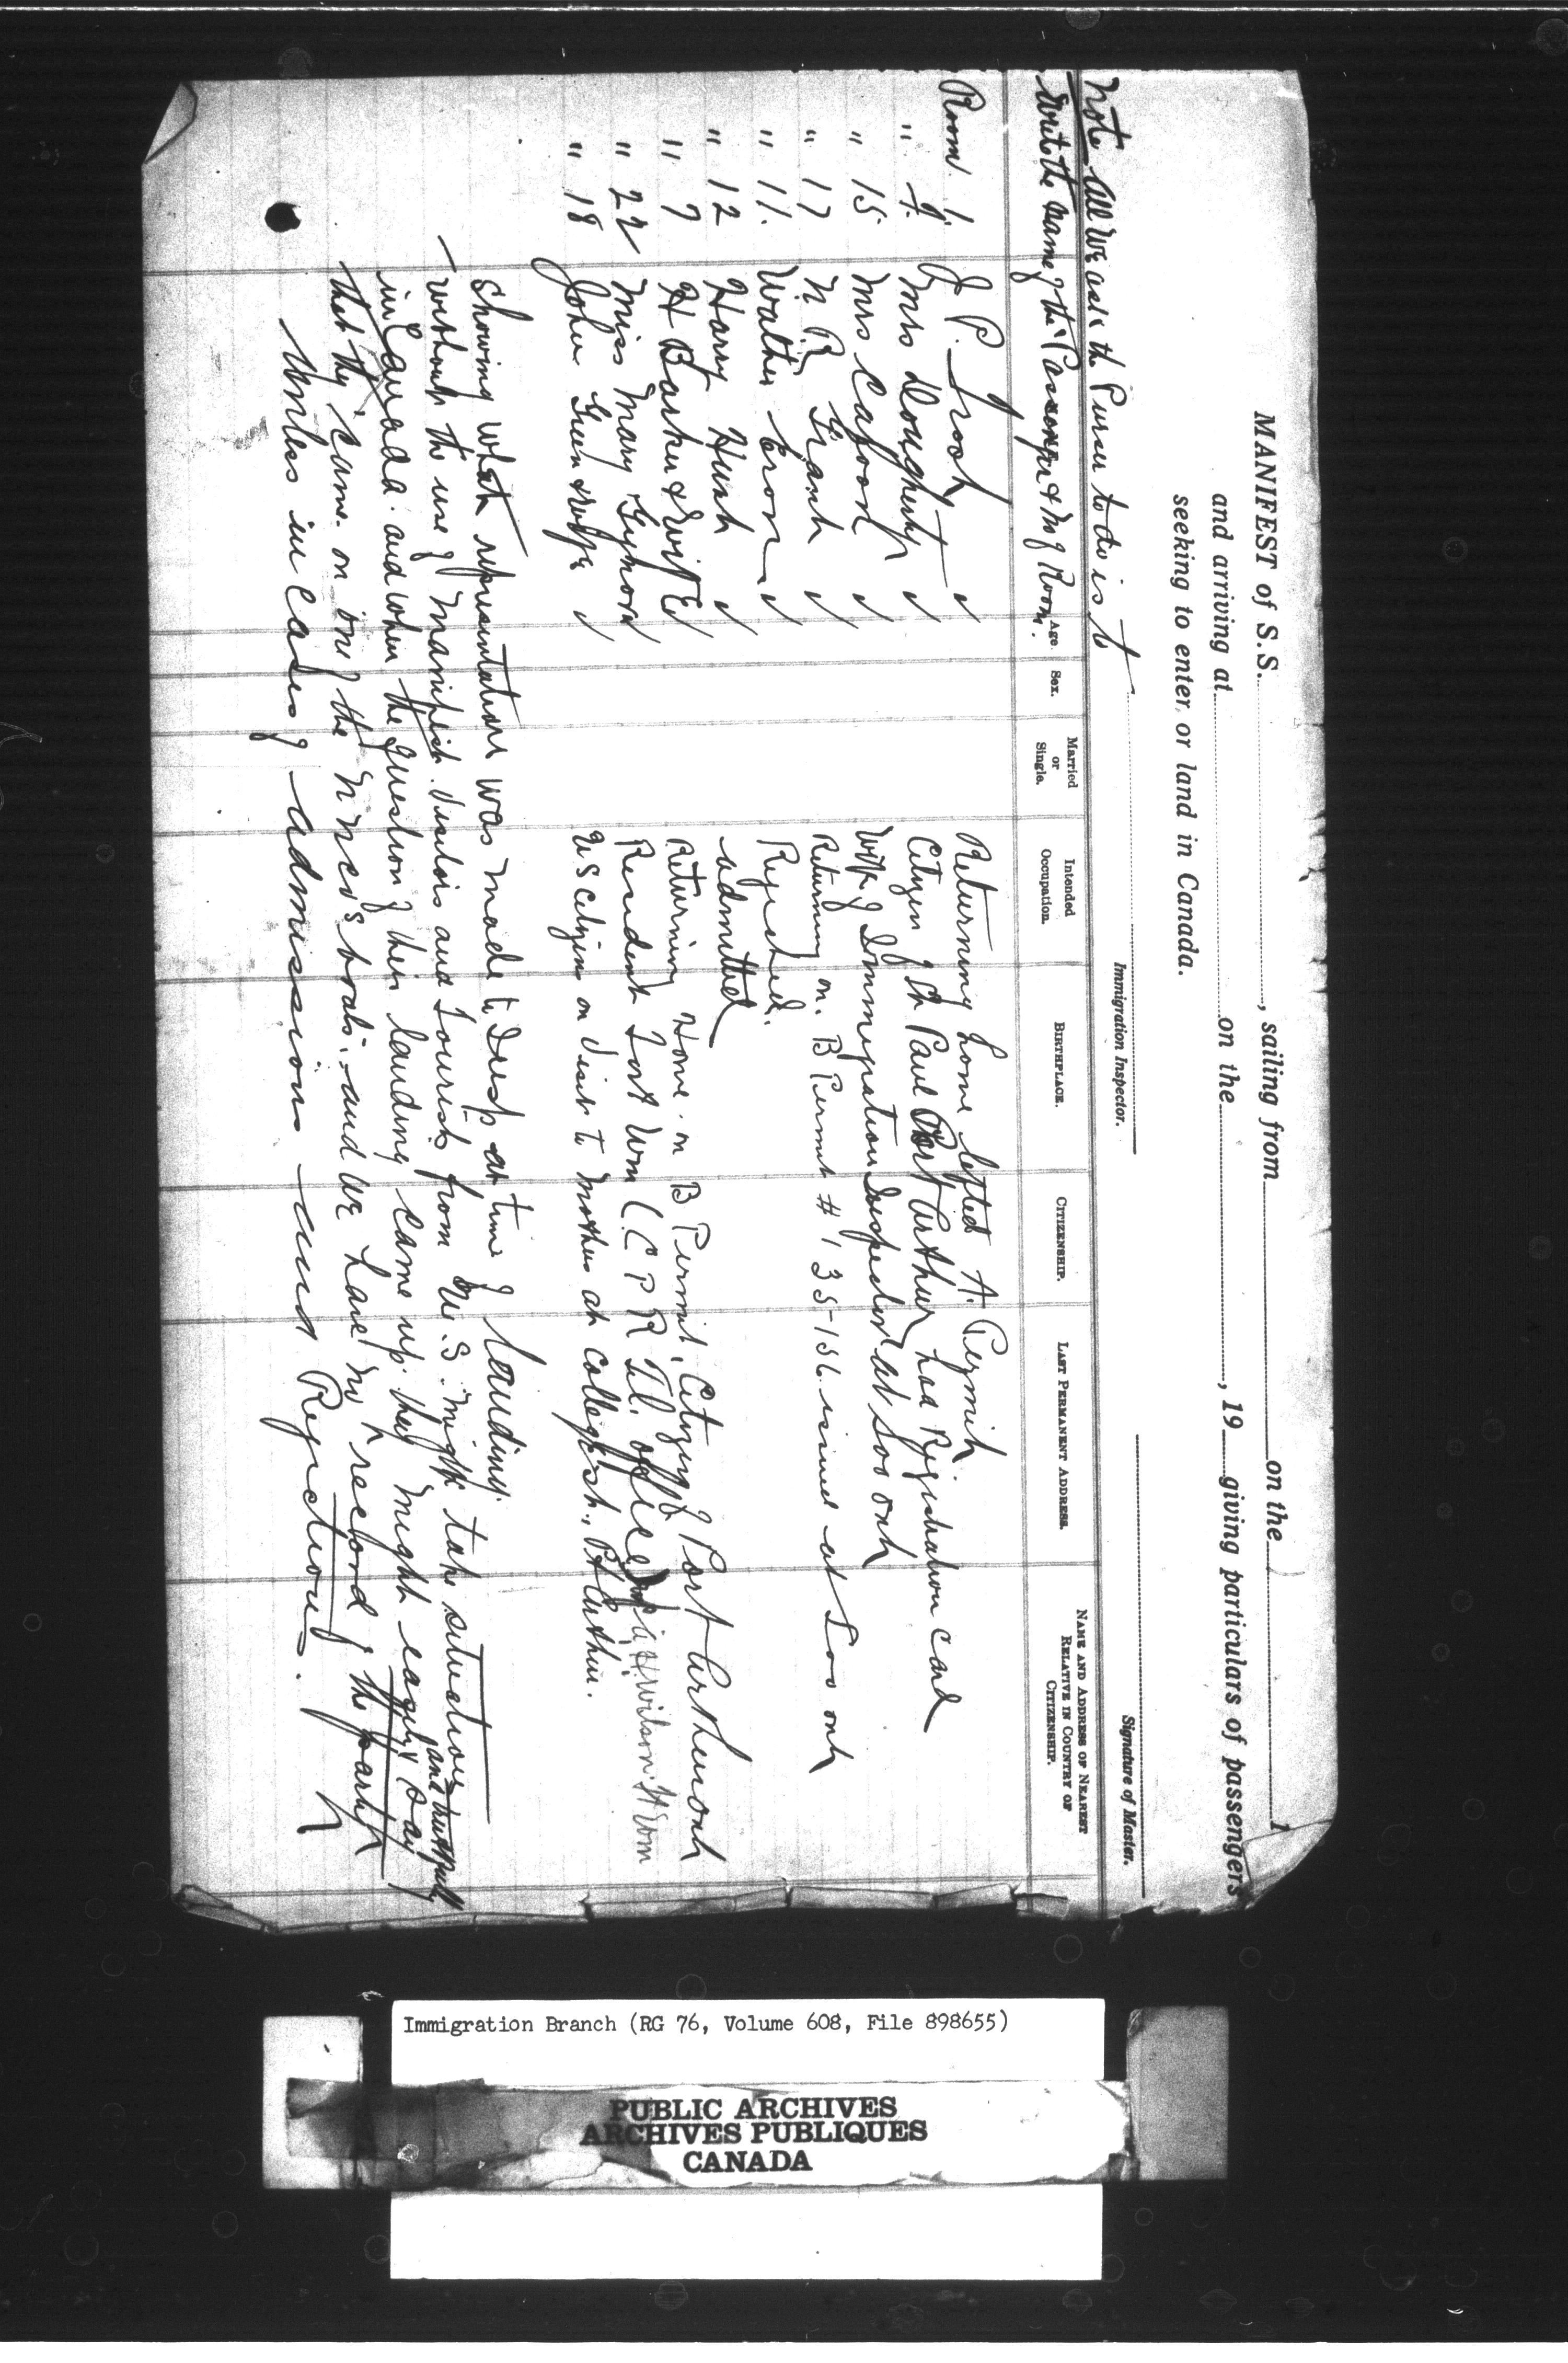 MANIFEST of S.S. , sailing from on the 1
and arriving at on the , 19 giving particulars of passengers
seeking to enter, or land in Canada.
Immigration Inspector.
Signature of Master.
Note All we ask the Purser to do is to
write the name of the Passenger & No of Room.
Age.
Sex.
Married or Single.
Intended Occupation.
BIRTHPLACE.
CITIZENSHIP.
LAST PERMANENT ADDRESS.
NAME AND ADDRESS OF NEAREST RELATIVE IN COUNTRY OF CITIZENSHIP.
Room 1. J. P. ✓ Returning home lifted A. Permit
" Mrs Dougherty ✓ Citizen of St Paul Port Arthur has Registration Card
" 15 Mrs Cafoon ✓ Wife of Immigration Inspector at Soo ont
" 17 N. R. Grant ✓ Returning on B Permit # 135-136 issued at Soo ont
" 11. Walter ✓ Rejected.
" 12 Harry ✓ admitted
" 7 H Barker & wife ✓ Returning Home on B Permit, Citizen of Port Arthur ont
" 22 Miss Mary ✓ Resident Fort Wm (C P R Tel. office) Wilson Ft Wm
" 18 John Green & wife ✓ US Citizen on visit to mother at College st., Pt Arthur.
Showing what representation was made to Insp at time of landing.
without the use of manifest. visitors and Tourists from U.S. might take situations
in Canada. and when the question of their landing came up. they might easily and truthfully say
that they came on one of the N N Co's boats. and we have no record of the party
Unless in cases of admission and Rejections.
Immigration Branch (RG 76, Volume 608, File 898655)
PUBLIC ARCHIVES
ARCHIVES PUBLIQUES
CANADA